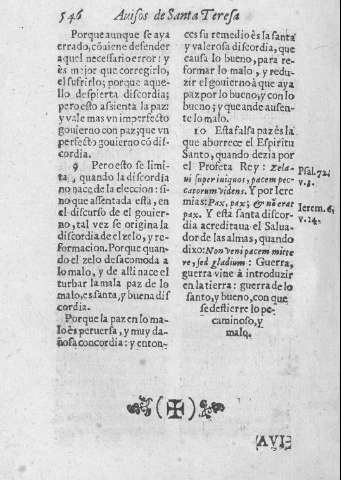 546 Auisos de Santa Teresa
Porque aunque se aya
errado, cõuiene defender
aquel necessario error: y
ès mejor que corregirlo,
el sufrirlo; porque aque-
llo despierta discordia;
pero esto assienta la paz:
y vale mas vn imperfecto
gouierno con paz; que vn
perfecto gouierno cõ dis-
cordia.
9 Pero esto se limi-
ta, quando la discordia
no nace de la eleccion: si-
no que assentada esta, en
el discurso de el gouier-
no, tal vez se origina la
discordia de el zelo, y re-
formacion. Porque quan-
do el zelo desacomoda a
lo malo, y de alli nace el
turbar la mala paz de lo
malo, es santa, y buena dis
cordia.
Porque la paz en lo ma-
lo ès peruersa, y muy da-
ñosa concordia: y enton-
ces su remedio ès la santa
y valerosa discordia, que
causa lo bueno, para re-
formar lo malo, y redu-
zir el gouierno à que aya
paz por lo bueno, y con lo
bueno; y que ande ausen-
te lo malo.
10 Esta falsa paz ès la
que aborrece el Espiritu
Santo, quando dezia por
el Profeta Rey: Zela-
ui super iniquos, pacem pec-
catorum videns. Y por Iere
mias: Pax, pax; & nõ erat
pax. Y esta santa discor-
dia acreditaua el Salua-
dor de las almas, quando
dixo: Non veni pacem mitte
re, sed gladium: Guerra,
guerra vine à introduzir
en la tierra: guerra de lo
santo, y bueno, con que
se destierre lo pe-
caminoso, y
malo.
Psal. 72,
v. 3.
Ierem. 6,
v. 14.
AVI-